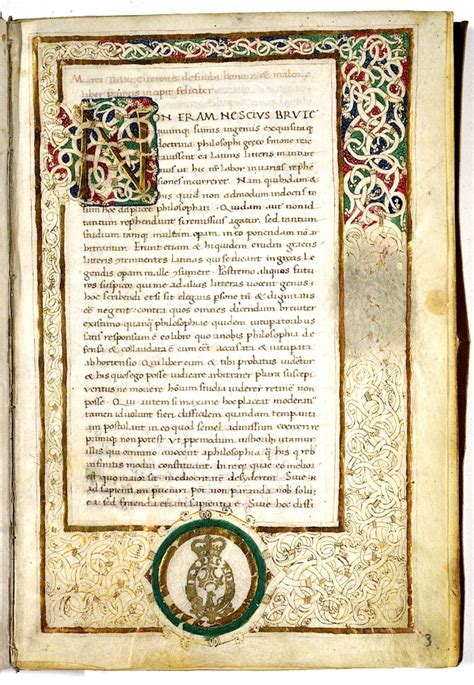 Marci Tullii ciceronis de finib; bonor & malor
liber primus incipit feliciter
NON ERAM NESCIUS BRUTE
quum que summis ingeniis exquisitaq
doctrina philosophi greco sermone
ea latinis litteris
ut hic noster labor in varias
siones incurreret. Nam quibusdam &
his quid non admodum indoctis
hoc displicet philosophari. Quidam aut non
tantum reprhendunt si remissius agatur. sed tantum
studium tamq multam opam in eo ponendam non
bitrantur. Erunt etiam & hi quidem eruditi grecis
litteris contemnentes latinas qui se dicant in grecis
gendis opam malle consumere. Postremo aliquos
ros suspicor qui me ad alias litteras vocent genus
hoc scribendi etsi sit elegans psone tn & dignitatis
ee negent. contra quos omnes dicendum breviter
existimo. quanq philosophiae quidem vituperatorib;
satis responsum e eo libro quo a nobis philosophia de
fensa & collaudata e cum eet accusata & vituperata
ab hortensio. Qui liber cum & tibi probatus videretur
& his quos ego posse iudicare arbitrarer plura suscepi
veritus ne movere hominum studia viderer retinere non
posse. Qui autem si maxime hoc placeat moderatius
tamen id volunt fieri. difficilem quandam temperantiam
postulant in eo quod semel admissum coerceri re
primiq non potest ut
qui omnino avocent a philosophia q his q reb
infinitis modum constituant. In req eo meliore
quo maior sit mediocritate desyderent. Sive
ad sapientiam pot non paranda nob solum
ea sed fruenda etiam sapientia e Sive hoc diffi
3